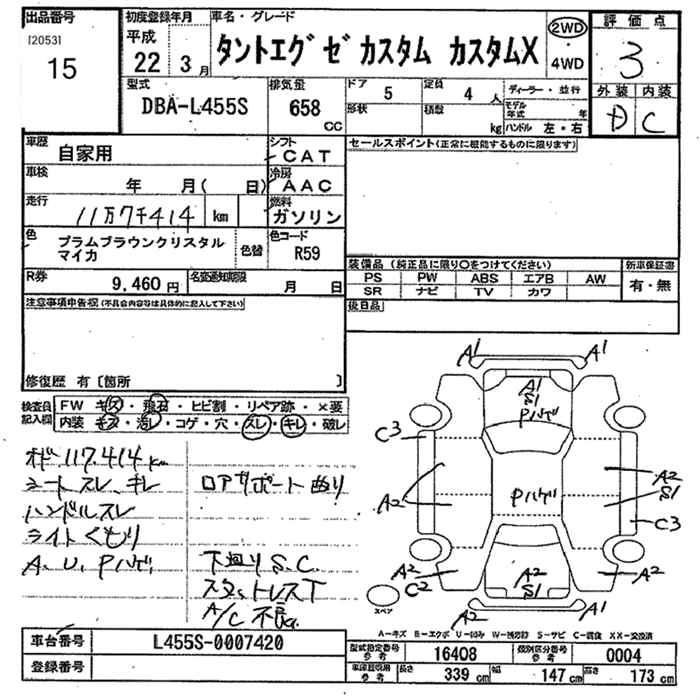 出品番号
[2053]
15
初度登録年月
平成
22 3月
車名・グレード
タントエグゼカスタム カスタムX
2WD
・
4WD
評価点
3
外装 内装
D C
型式
DBA-L455S
排気量
658
CC
ドア
5
定員
4 人
形状
積載
kg
ディーラー・並行
モデル年式 年
ハンドル 左・右
車歴
自家用
シフト
CAT
車検
年 月( 日)
冷房
AAC
走行
11万7千414 km
燃料
ガソリン
色
プラムブラウンクリスタル
マイカ
色替
色コード
R59
R券
9,460 円
名変通知期限
月 日
セールスポイント(正常に機能するものに限ります)
装備品 (純正品に限り○をつけてください)
PS PW ABS エアB AW
SR ナビ TV カワ
新車保証書
有・無
後日品
注意事項申告欄(不具合内容等は具体的に記入して下さい)
修復歴 有〔箇所 〕
検査員
記入欄
FW キズ・飛石・ヒビ割・リペア跡・×要
内装 キズ・汚レ・コゲ・穴・スレ・キレ・破レ
117.414 km
シートスレ、キレ
ハンドルスレ
ライトくもり
A、U、Pハゲ
ロアサポート曲り
下廻りS.C.
A/C不良
A1 A1
A1
S1
Pハゲ
C3
A2
Pハゲ
A2
S1
C3
A2
C2
A2
S1
A2
A2 A1
スペア
A-キズ E-エクボ U-凹み W-補修跡 S-サビ C-腐食 XX-交換済
車台番号
L455S-0007420
登録番号
型式指定番号
参考
16408
類別区分番号
参考
0004
車検証寸用
参考
長さ 339 cm 幅 147 cm 高さ 173 cm